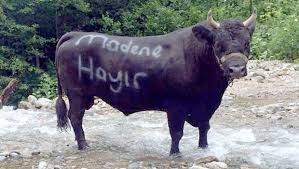 Madene
Hayır